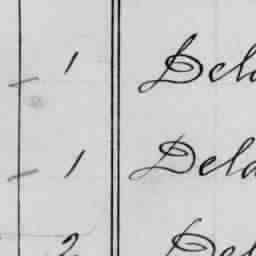 - 1 Dela
- 1 Dela
2 Del